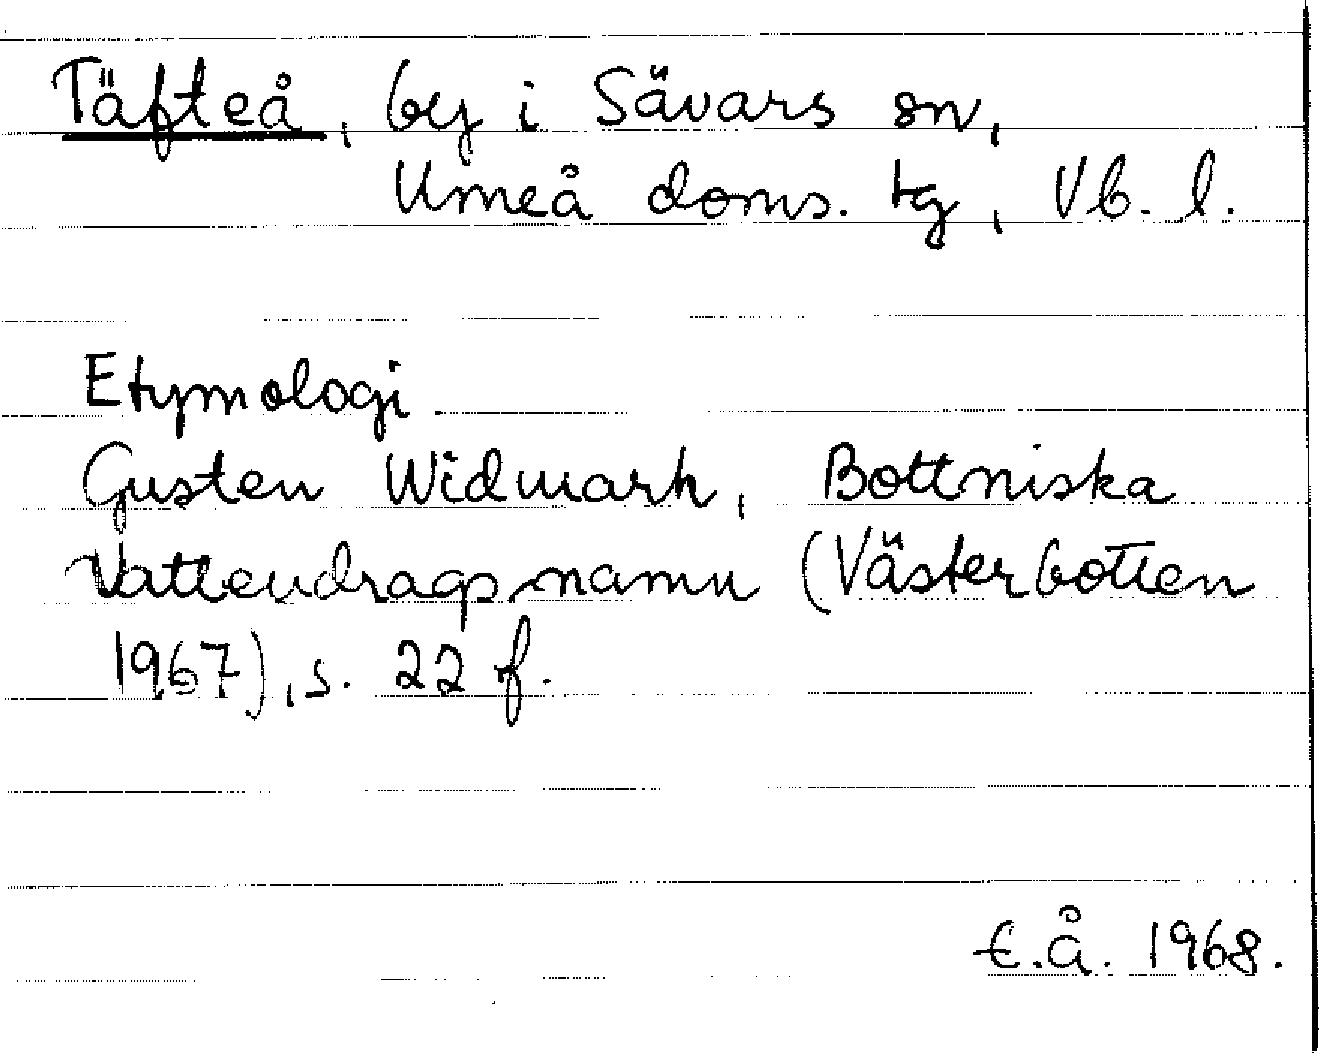 Täfteå, by i Sävars sn,
Umeå doms. tg, Vb. l.
Etymologi
Gusten Widmark, Bottniska
Vattendragsnamn (Västerbotten
1967), s. 22 f.
E.Å. 1968.